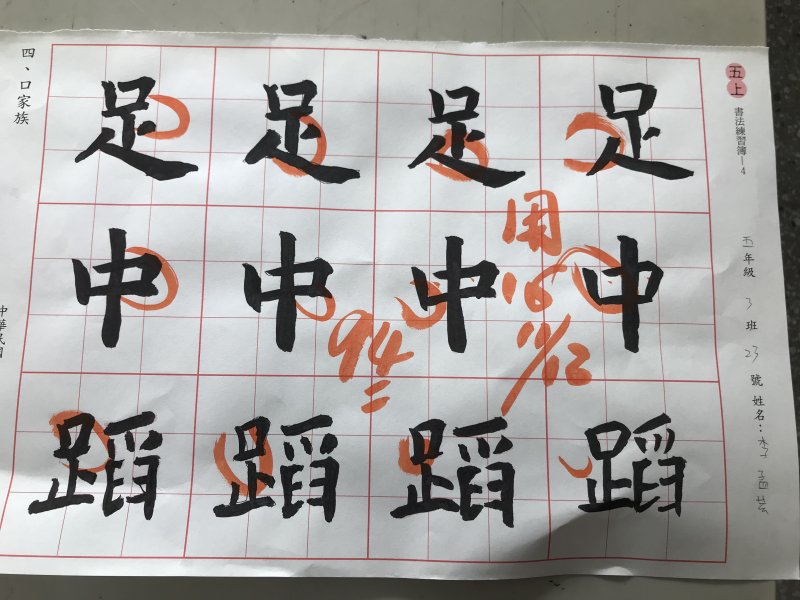 五上
書法練習簿－4
五年級 3班 23號 姓名：李
足 足 足 足
中 中 中 中
蹈 蹈 蹈 蹈
用心
94
11/12
四、口家族
中華民國